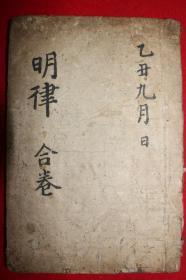 乙丑九月日
明律 合卷